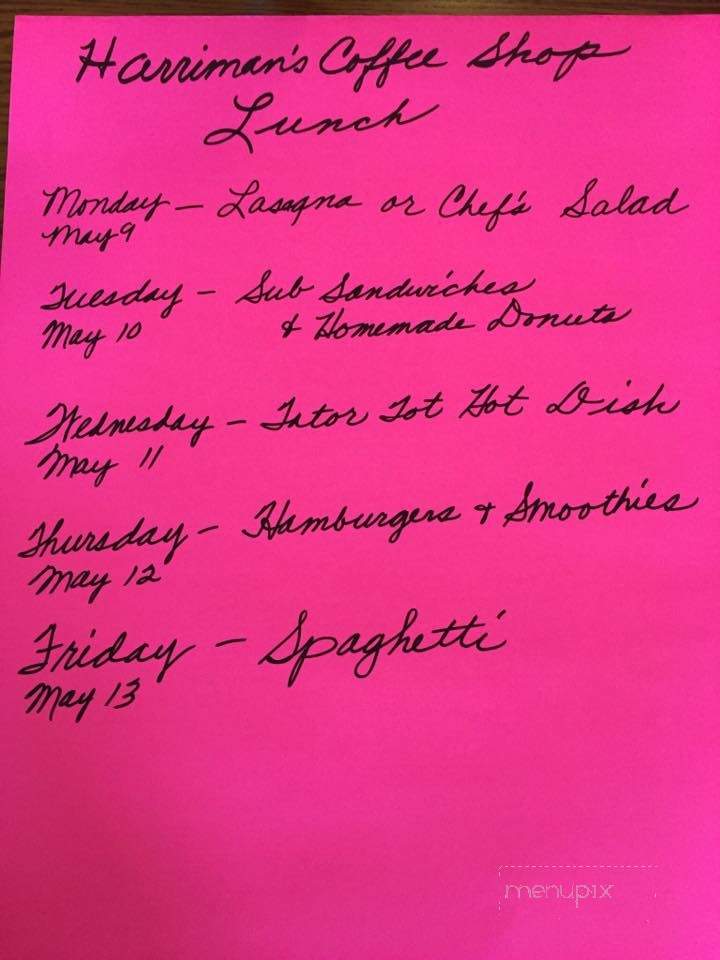 Harriman's Coffee Shop
Lunch
Monday – Lasagna or Chef's Salad
May 9
Tuesday – Sub Sandwiches
May 10 & Homemade Donuts
Wednesday – Tator Tot Hot Dish
May 11
Thursday – Hamburgers & Smoothies
May 12
Friday – Spaghetti
May 13
menupix